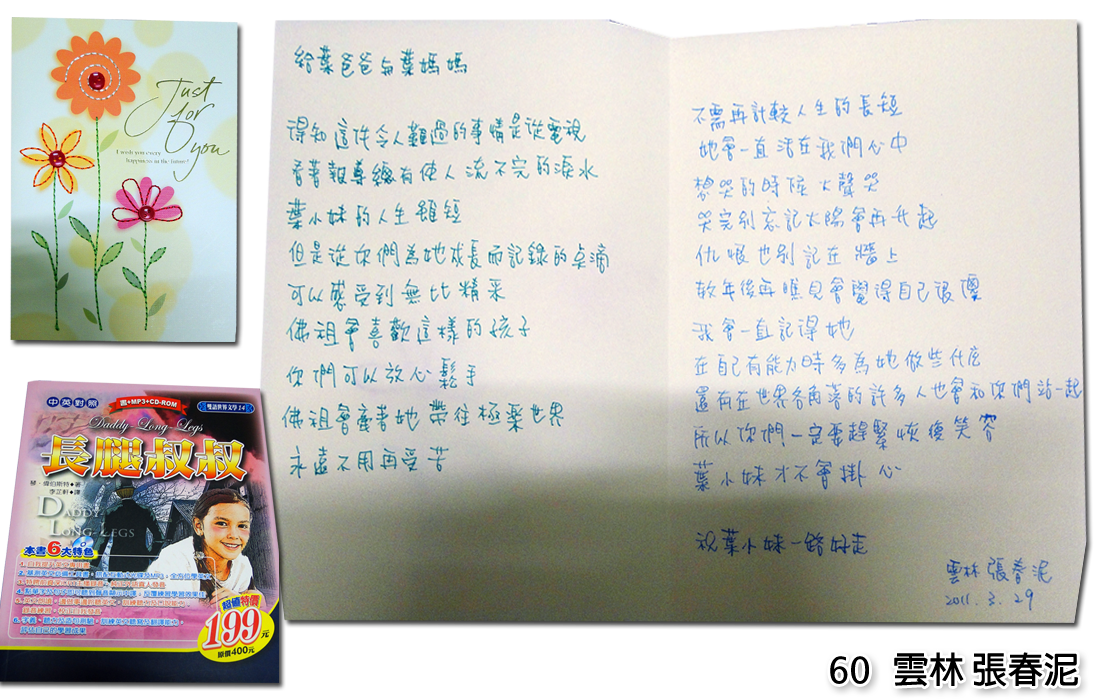 Just
for
you
I wish you every
happiness in the future!
給葉爸爸與葉媽媽
得知這件令人難過的事情是從電視
看著報導總有使人流不完的淚水
葉小妹的人生雖短
但是從你們為她成長而記錄的點滴
可以感受到無比精采
佛祖會喜歡這樣的孩子
你們可以放心鬆手
佛祖會牽著她帶往極樂世界
永遠不用再受苦
不需再計較人生的長短
她會一直活在我們心中
想哭的時候大聲哭
哭完別忘記太陽會再升起
仇恨也別記在牆上
數年後再瞧見會覺得自己很傻
我會一直記得她
在自己有能力時多為她做些什麼
還有在世界各角落的許多人也會和你們站一起
所以你們一定要趕緊恢復笑容
葉小妹才不會掛心
祝葉小妹一路好走
雲林 張春泥
2011.3.29
中英對照
書+MP3+CD-ROM
雙語世界文學 14
Daddy-Long-Legs
長腿叔叔
琴‧維伯斯特◆著
李芷軒◆譯
DADDY
LONG-LEGS
本書6大特色
超值特價
199元
原價400元
60 雲林 張春泥